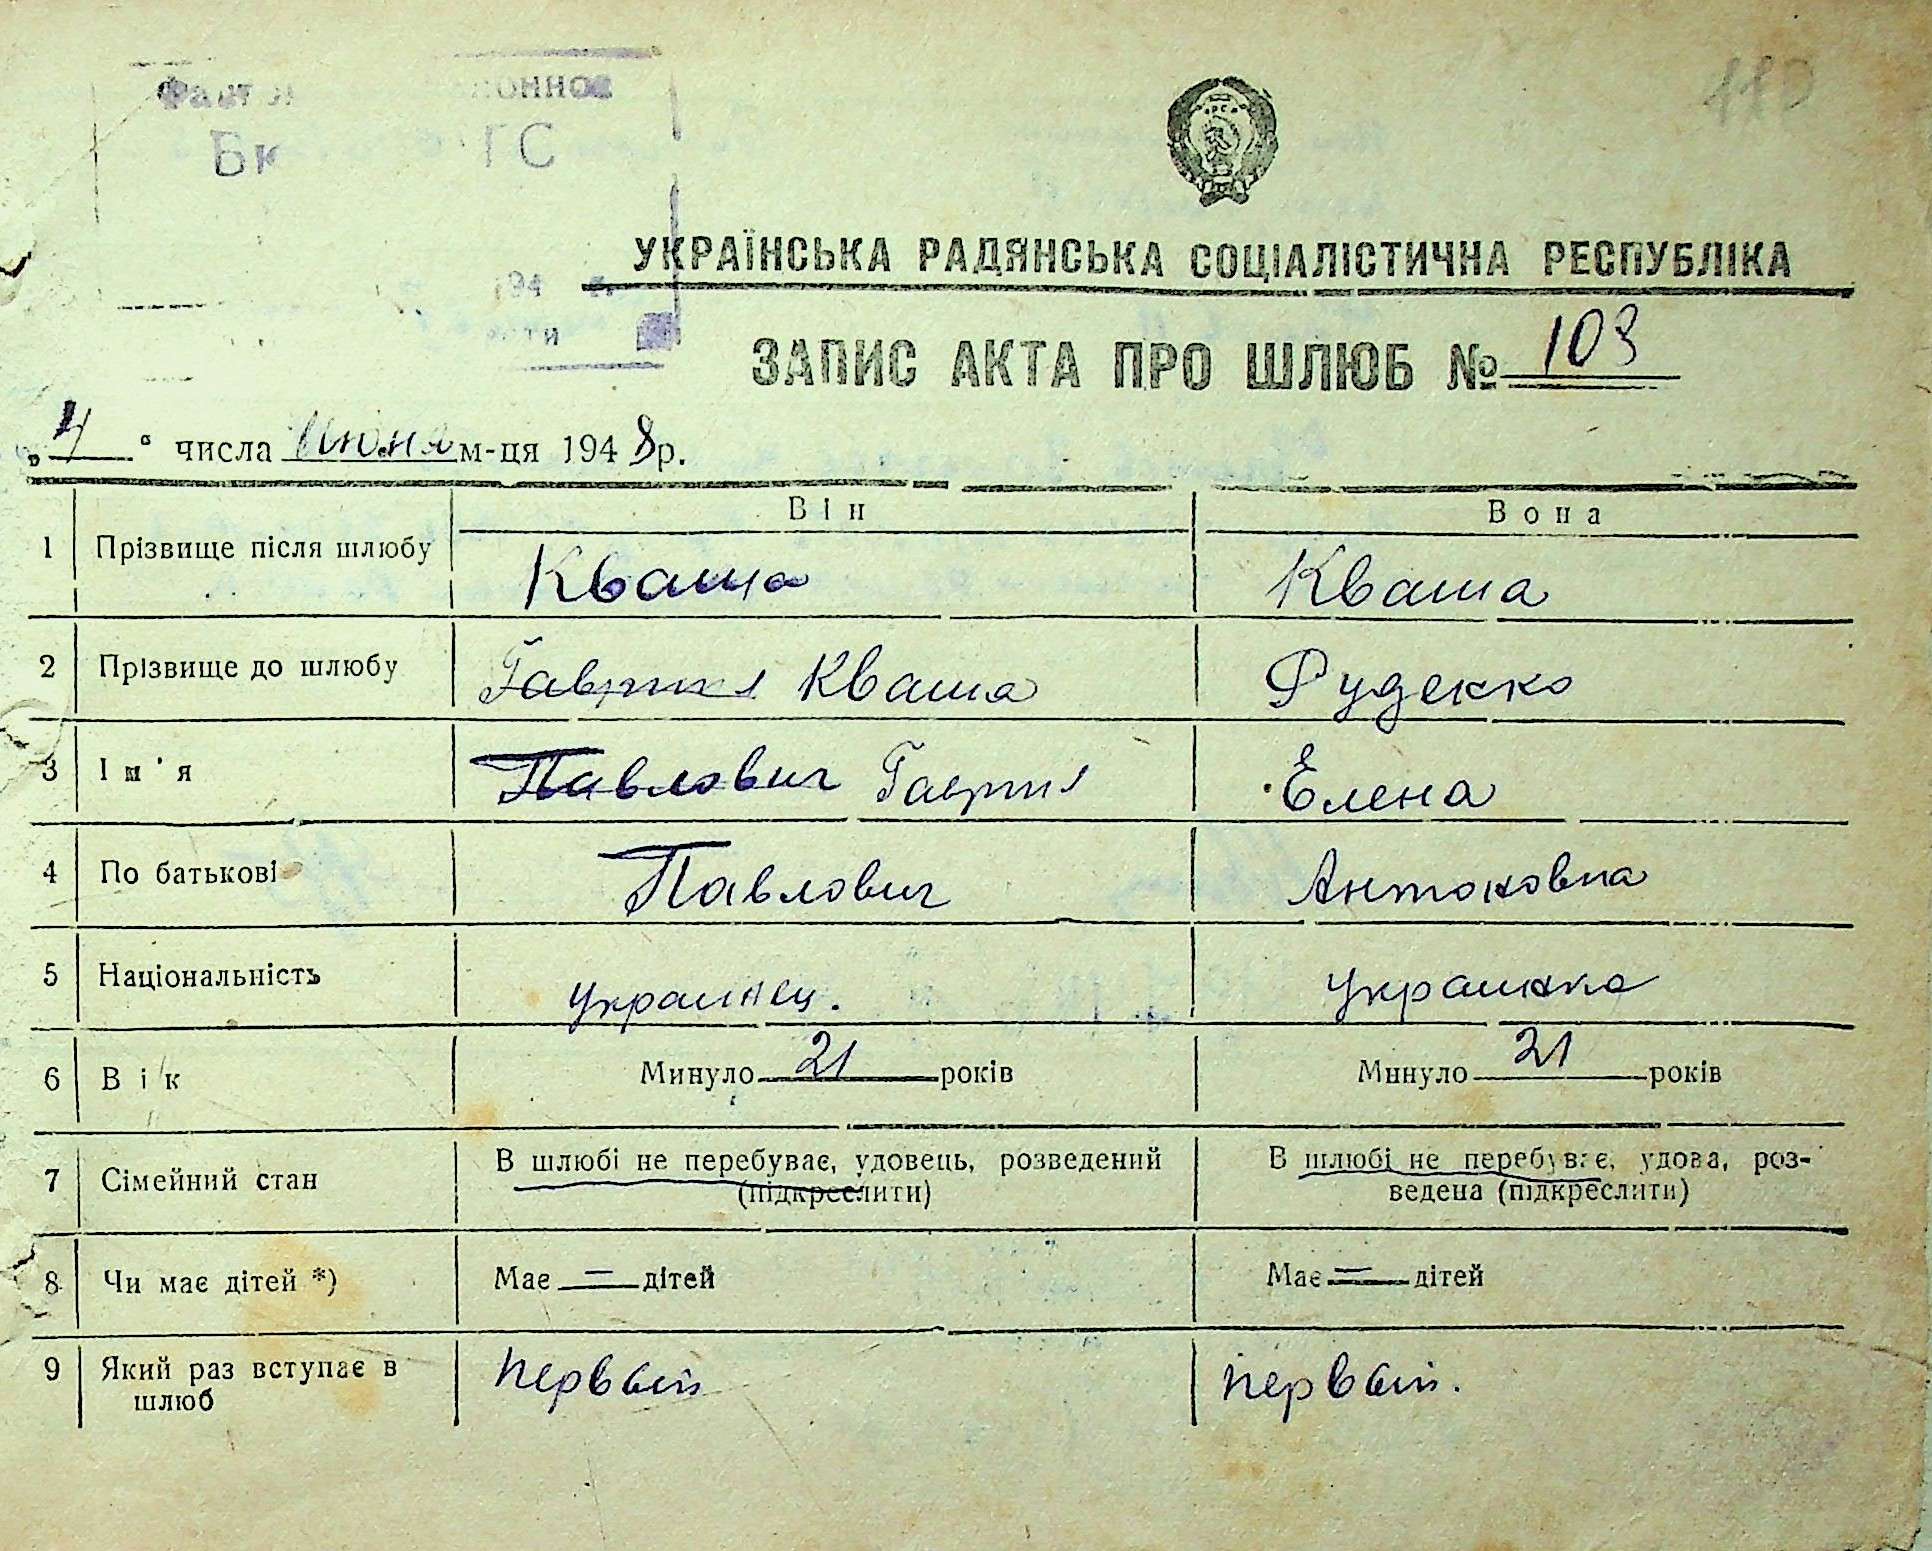 ГС
УКРАЇНСЬКА РАДЯНСЬКА СОЦІАЛІСТИЧНА РЕСПУБЛІКА
ЗАПИС АКТА ПРО ШЛЮБ № 103
„4“ числа июня м-ця 1948 р.
Він Вона
1 Прізвище після шлюбу Кваша Кваша
2 Прізвище до шлюбу Гаврил Кваша Руденко
3 Ім'я Павлович Гаврил Елена
4 По батькові Павлович Антоновна
5 Національність украинец. украинка
6 Вік Минуло 21 років Минуло 21 років
7 Сімейний стан В шлюбі не перебуває, удовець, розведений В шлюбі не перебуває, удова, роз-
(підкреслити) ведена (підкреслити)
8 Чи має дітей *) Має — дітей Має — дітей
9 Який раз вступає в первый первый.
шлюб